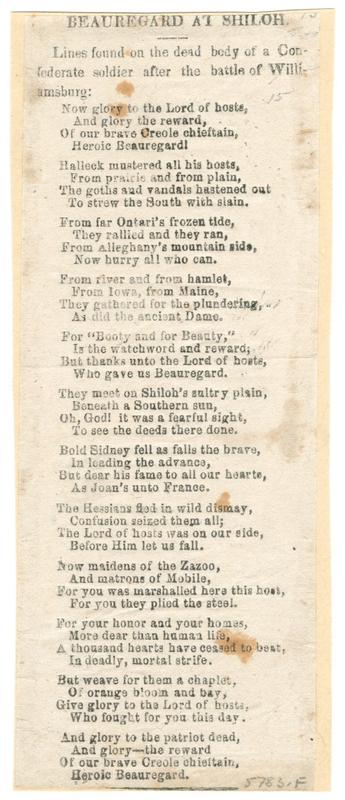 BEAUREGARD AT SHILOH.
Lines found on the dead body of a Con-
federate soldier after the battle of Willi-
amsburg:
15
Now glory to the Lord of hosts,
And glory the reward,
Of our brave Creole chieftain,
Heroic Beauregard!
Halleck mustered all his hosts,
From prairie and from plain,
The goths and vandals hastened out
To strew the South with slain.
From far Ontari's frozen tide,
They rallied and they ran,
From Alleghany's mountain side,
Now hurry all who can.
From river and from hamlet,
From Iowa, from Maine,
They gathered for the plundering,
As did the ancient Dame.
For "Booty and for Beauty,"
Is the watchword and reward;
But thanks unto the Lord of hosts,
Who gave us Beauregard.
They meet on Shiloh's sultry plain,
Beneath a Southern sun,
Oh, God! it was a fearful sight,
To see the deeds there done.
Bold Sidney fell as falls the brave,
In leading the advance,
But dear his fame to all our hearts,
As Joan's unto France.
The Hessians fled in wild dismay,
Confusion seized them all;
The Lord of hosts was on our side,
Before Him let us fall.
Now maidens of the Zazoo,
And matrons of Mobile,
For you was marshalled here this host,
For you they plied the steel.
For your honor and your homes,
More dear than human life,
A thousand hearts have ceased to beat,
In deadly, mortal strife.
But weave for them a chaplet,
Of orange bloom and bay,
Give glory to the Lord of hosts,
Who fought for you this day.
And glory to the patriot dead,
And glory—the reward
Of our brave Creole chieftain,
Heroic Beauregard.
5783.F